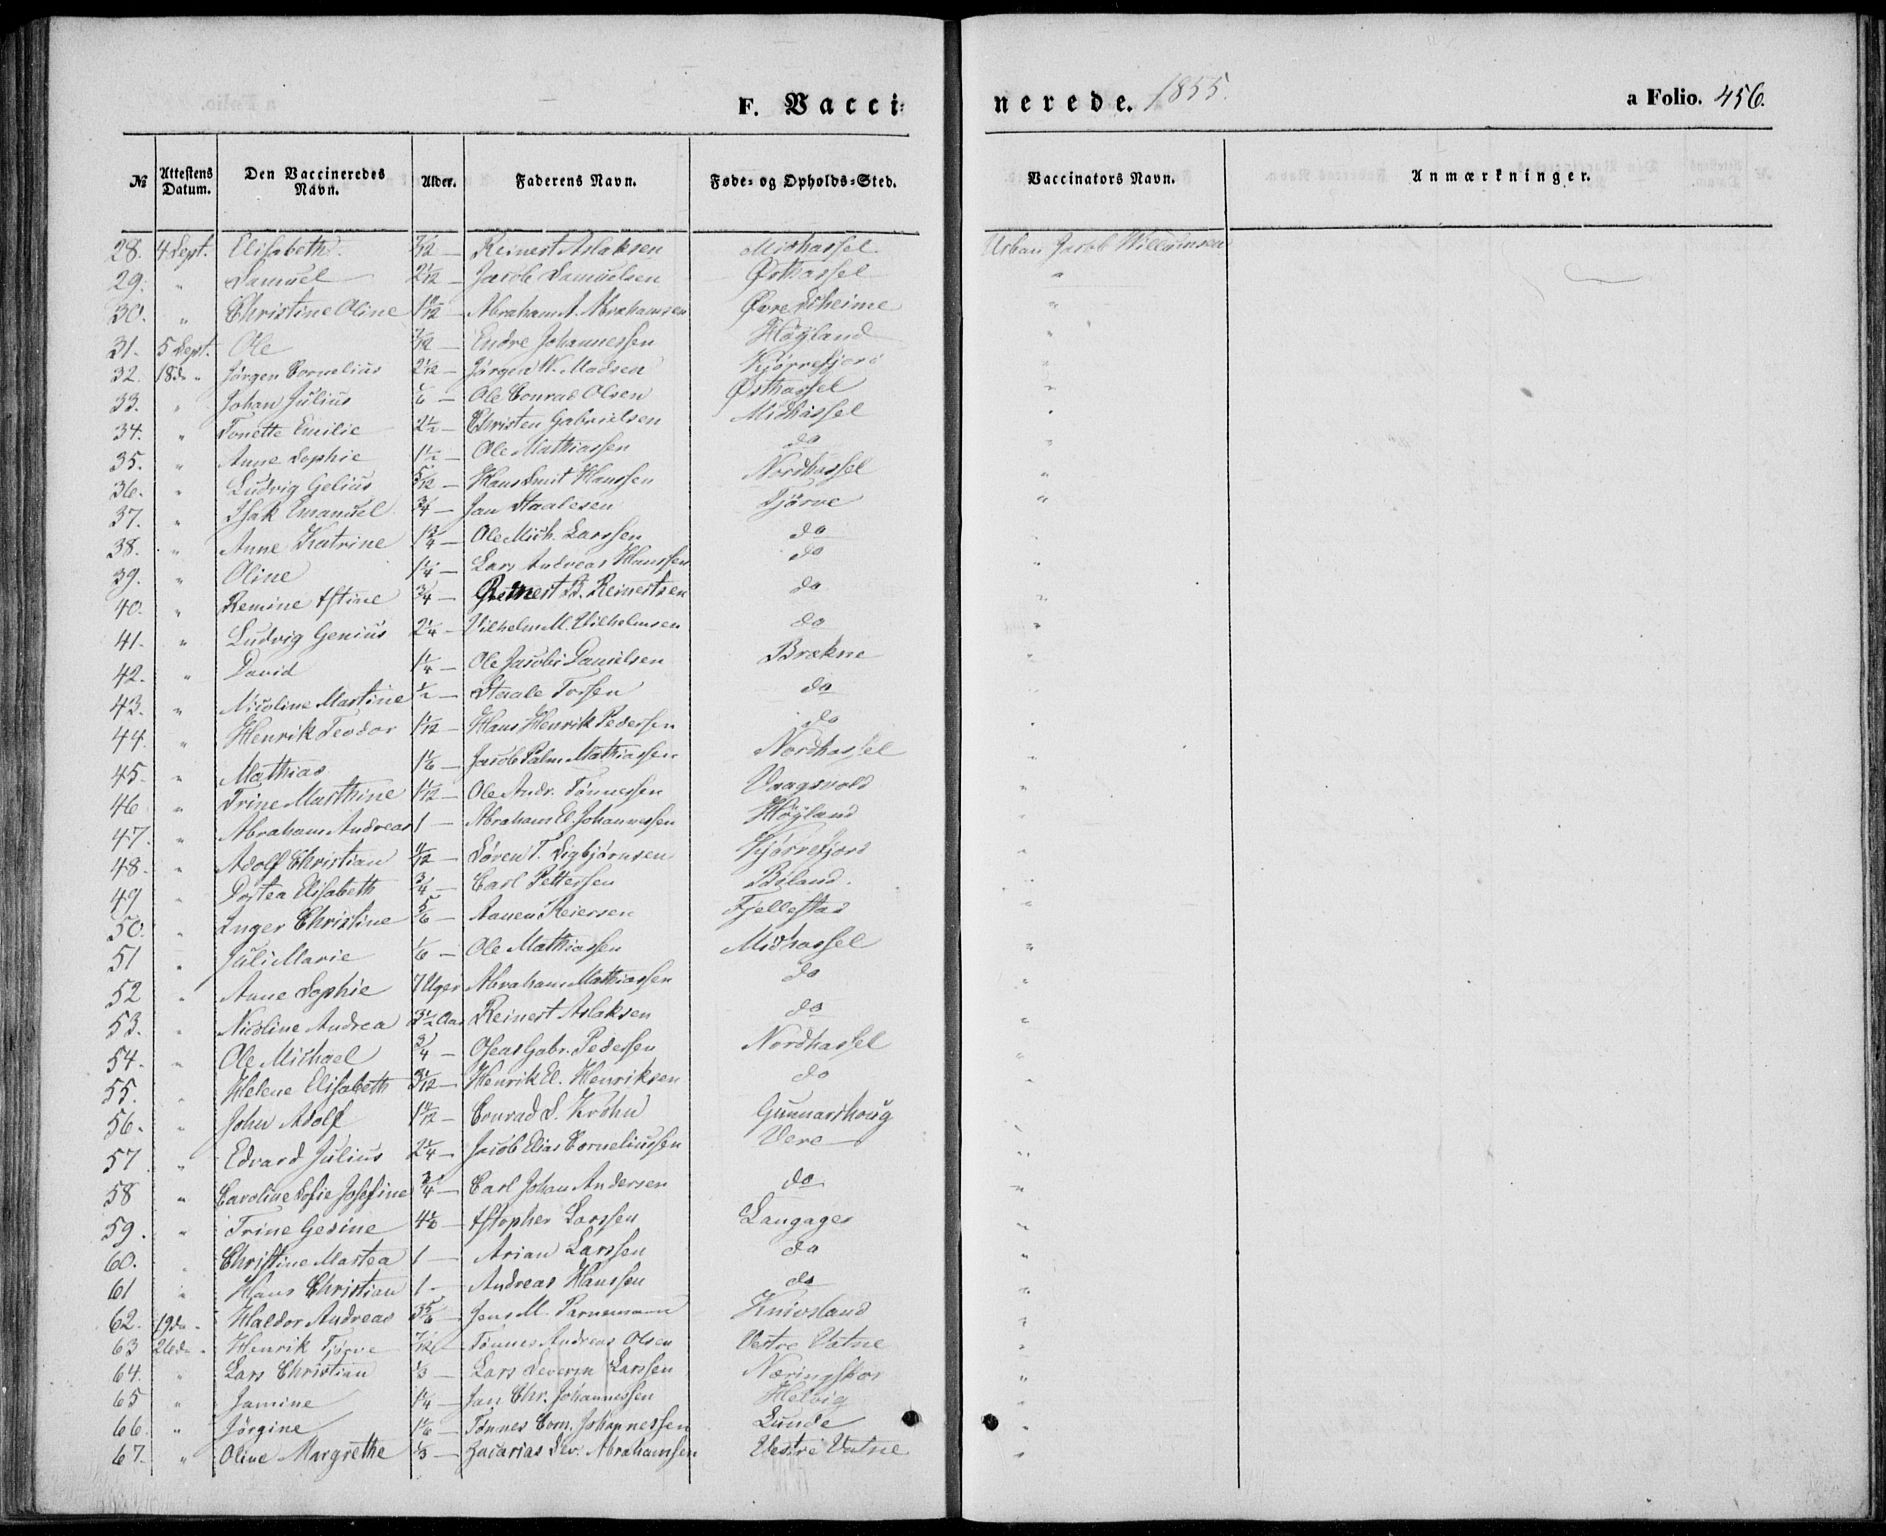 F. Vacci-
nerede. 1855.
a Folio. 456.
№ Attestens Datum. Den Vaccineredes Navn. Alder. Faderens Navn. Føde- og Opholds-Sted. Vaccinators Navn. Anmærkninger.
28. 4 Sept. Elisabeth Reinert Aslaksen Midhassel Urban Jacob Willumsen
29. " Samuel 2 1/12 — Jacob Samuelsen Østhassel "
30. " Christine Oline Abraham A. Abrahamsen Øvre "
31. 5 Sept. Ole Endre Johannessen Höyland "
32. 18 do " Jørgen Cornelius 2 1/12 — Jørgen W. Madsen Kjørrefjord "
33. " Johan Julius Ole Conrad Olsen Østhassel "
34. " Tonette Emilie 2 1/2 — Christen Gabrielsen Midhassel "
35. " Anne Sophie 1 1/2 — Ole Mathiassen do "
36. " Ludvig Gelius 5/12 — Hans Smit Hanssen Nordhassel "
37. " Isak Emanuel 3/4 — Jan Staalesen Tjörve "
38. " Anne Katrine 1 3/4 — Ole Mich. Larssen do "
39. " Oline 1 1/4 — Lars Andreas Hanssen do "
40. " Remine Astine 3/4 — B. Reinertsen do "
41. " Ludvig Genius 2 1/4 — Vilhelm M. Vilhelmsen do "
42. " David 1/4 — Ole Jacob Danielsen Brækne "
43. " Nicoline Martine 1/2 — Staale Torsen do "
44. " Henrik Teodor 1 1/12 — Hans Henrik Pedersen do "
45. " Mathias 1 1/6 — Jacob Palm Mathiassen Nordhassel
46 " Trine Marthine 1 1/12 — Ole Andr. Tönnessen Vragsvold "
47. " Abraham Andreas 1 — Abraham El. Johannessen Höyland "
48. " Adolf Christian Sören T. Sigbjörnsen Kjørrefjord "
49 " Elisabeth 3/4 — Carl Pettersen Biland. "
50. " Inger Christine 5/6 — Aanen Reiersen Fjellestad "
51 " Juli Marie 1/6 — Ole Mathiassen Midhassel "
52 " Anne Sophie 7 Uger Abraham Mathiassen do "
53. " Nicoline Andrea 3 1/2 Aar Reinert Aslaksen do "
54. " Ole Michael 3/4 — Oseas Gabr. Pedersen Nordhassel "
55. " Helene Elisabeth 3 1/12 — Henrik El. Henriksen do "
56. " John Adolf Conrad S. Krohn Gunnarshoug
57 " Edvard Julius 2 1/4 — Jacob Elias Corneliussen Vere "
58 " Caroline Sofie Josefine 3/4 — Carl Johan Andersen do "
59. " Trine Gesine Larssen Langager "
60. " Christine Martea 1 — Arian Larssen do "
61 " Hans Christian 1 - Andreas Hanssen do "
62. 19 do " Haldor Andreas 3 5/6 — Jens M. Parnemann Knivsland "
63 26 do " Henrik Tjörve 7/12 Tönnes Andreas Olsen Vestre Vatne "
64. " Lars Christian 1/3 — Lars Severin Larssen Næringskor "
65 " Jamine 1 1/4 — Jan Chr. Johannessen Helvig "
66. " Jörgine 1 1/6 — Tönnes Corn. Johannessen Lunde "
67. " Oline Margrethe 1/3 — Zacarias Sev. Abrahamsen Vestre Vatne "